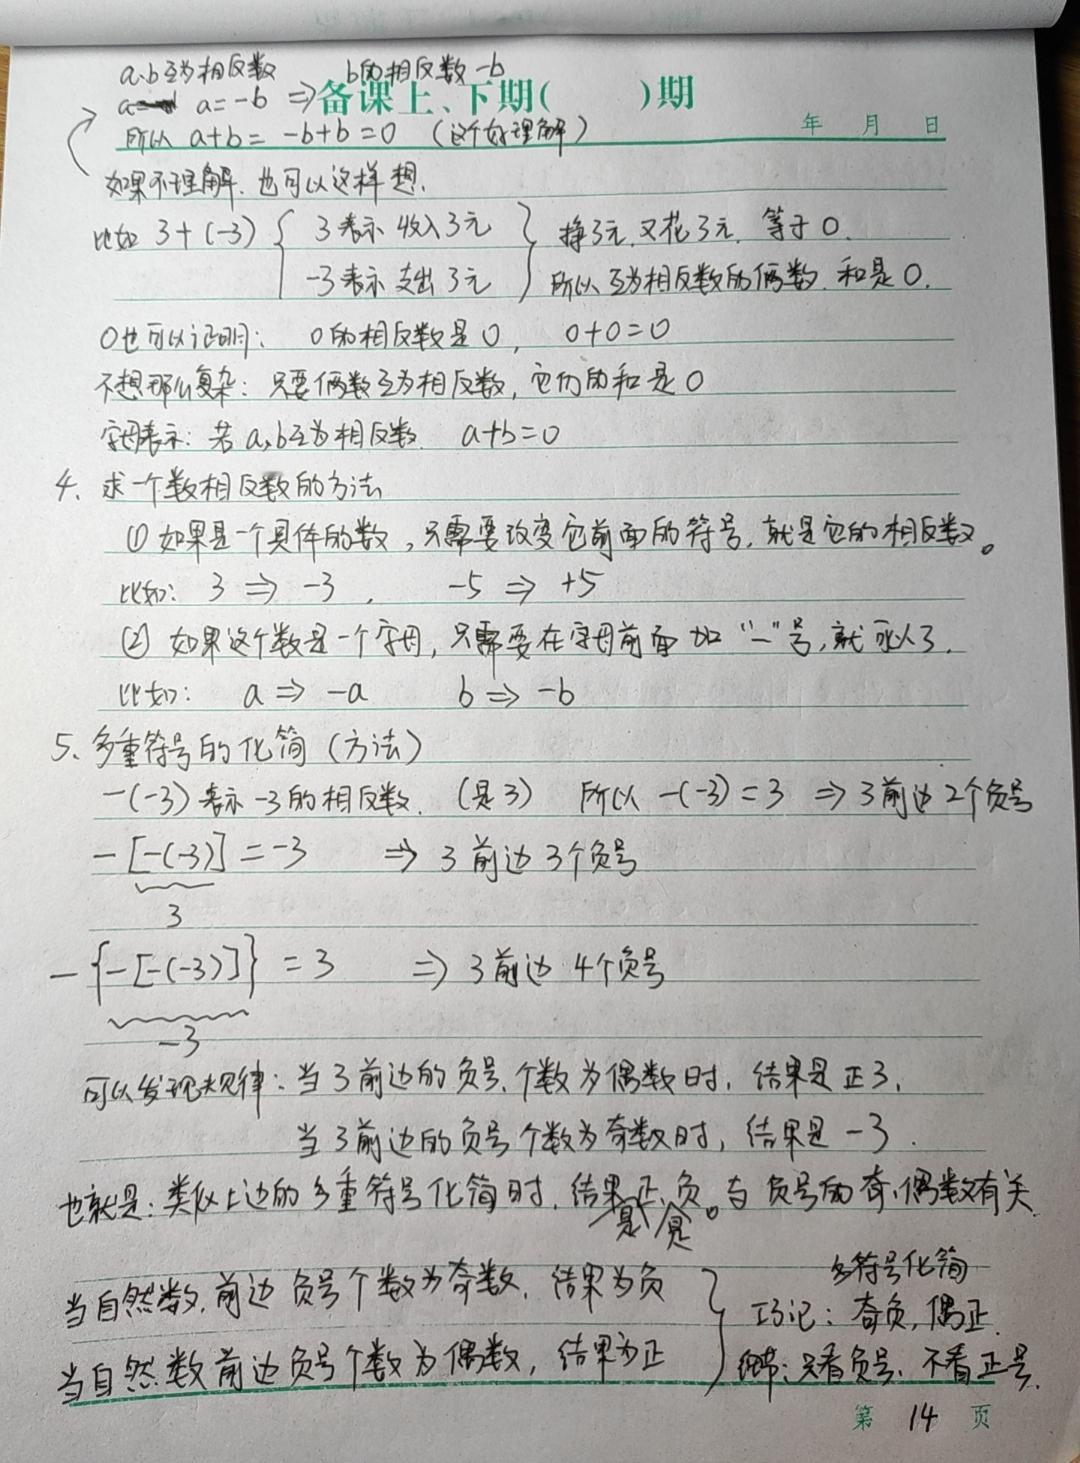 a、b互为相反数 b的相反数-b
a= a=-b ⇒
备课上、下期( )期
所以 a+b= -b+b=0 (这个好理解)
年 月 日
如果不理解.也可以这样想.
比如 3+(-3) { 3表示收入3元 } 挣3元,又花3元,等于0.
-3表示支出3元 所以互为相反数的俩数.和是0.
0也可以证明: 0的相反数是0, 0+0=0
不想那么复杂:只要俩数互为相反数,它们的和是0
字母表示:若a,b互为相反数. a+b=0
4、求一个数相反数的方法
① 如果是一个具体的数,只需要改变它前面的符号,就是它的相反数。
比如: 3 ⇒ -3 , -5 ⇒ +5
② 如果这个数是一个字母,只需要在字母前面加“-”号,就可以了.
比如: a ⇒ -a b ⇒ -b
5、多重符号的化简(方法)
-(-3)表示-3的相反数. (是3) 所以 -(-3)=3 ⇒ 3前边2个负号
-[-(-3)]=-3 ⇒ 3前边3个负号
3
-{-[-(-3)]}=3 ⇒ 3前边4个负号
-3
可以发现规律:当3前边的负号个数为偶数时,结果是正3,
当3前边的负号个数为奇数时,结果是-3.
也就是:类似上边的多重符号化简时,结果是正是负。与负号的奇、偶数有关
当自然数前边负号个数为奇数,结果为负
当自然数前边负号个数为偶数,结果为正
多符号化简
巧记:奇负,偶正.
细节:只看负号,不看正号.
第 14 页